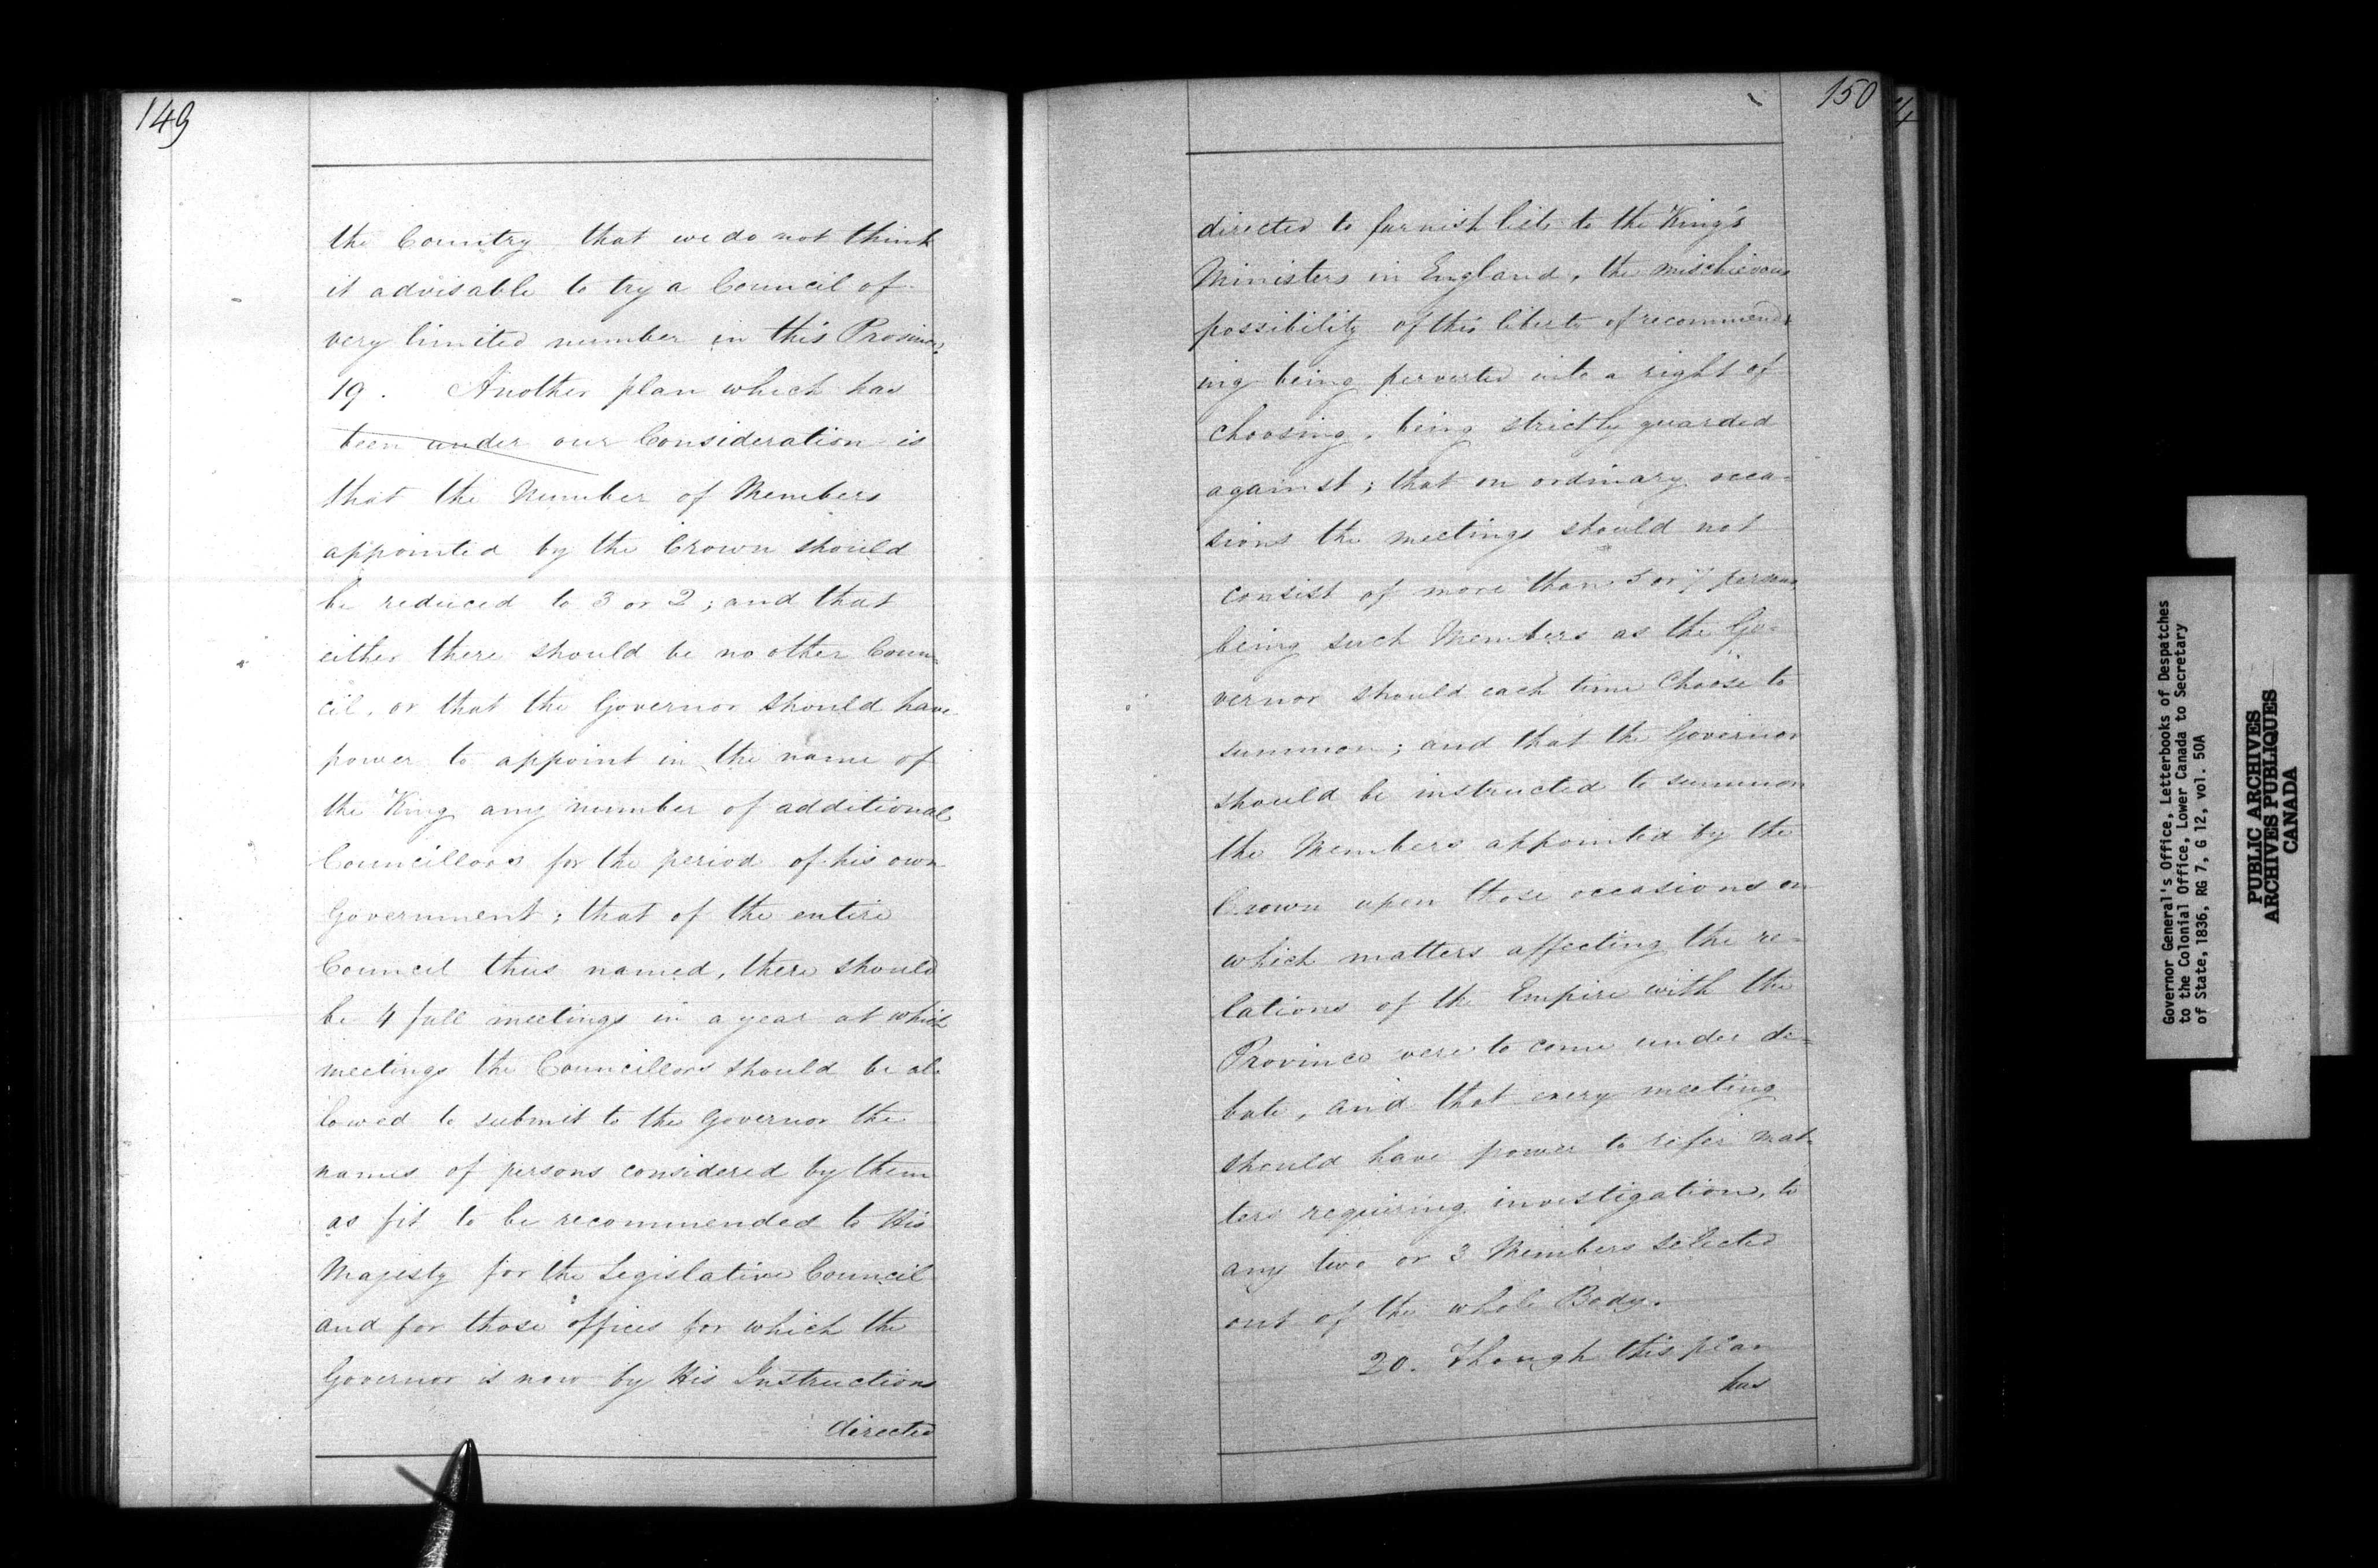 149
the Country that we do not think
it advisable to try a Council of
very limited number in this Province.
19. Another plan which has
been under our Consideration is
that the Number of Members
appointed by the Crown should
be reduced to 3 or 2; and that
either there should be no other Coun-
cil, or that the Governor should have
power to appoint in the name of
the King any number of additional
Councillors for the period of his own
Government; that of the entire
Council thus named, there should
be 4 full meetings in a year at which
meetings the Councillors should be al-
lowed to submit to the Governor the
names of persons considered by them
as fit to be recommended to His
Majesty for the Legislative Council
and for those offices for which the
Governor is now by His Instructions
directed
150
directed to furnish lists to the King's
Ministers in England, the mischievous
possibility of this liberty of recommend-
ing being perverted into a right of
choosing, being strictly guarded
against; that on ordinary occa-
sions the meetings should not
consist of more than 5 or 7 persons,
being such Members as the Go-
vernor should each time Choose to
summon; and that the Governor
should be instructed to summon
the Members appointed by the
Crown upon those occasions on
which matters affecting the re-
lations of the Empire with the
Province were to come under de-
bate, and that every meeting
should have power to refer mat-
ters requiring investigation, to
any two or 3 Members selected
out of the whole Body.
20. Though this plan
has
Governor General's Office, Letterbooks of Despatches
to the Colonial Office, Lower Canada to Secretary
of State, 1836, RG 7, G 12, vol. 50A
PUBLIC ARCHIVES
ARCHIVES PUBLIQUES
CANADA